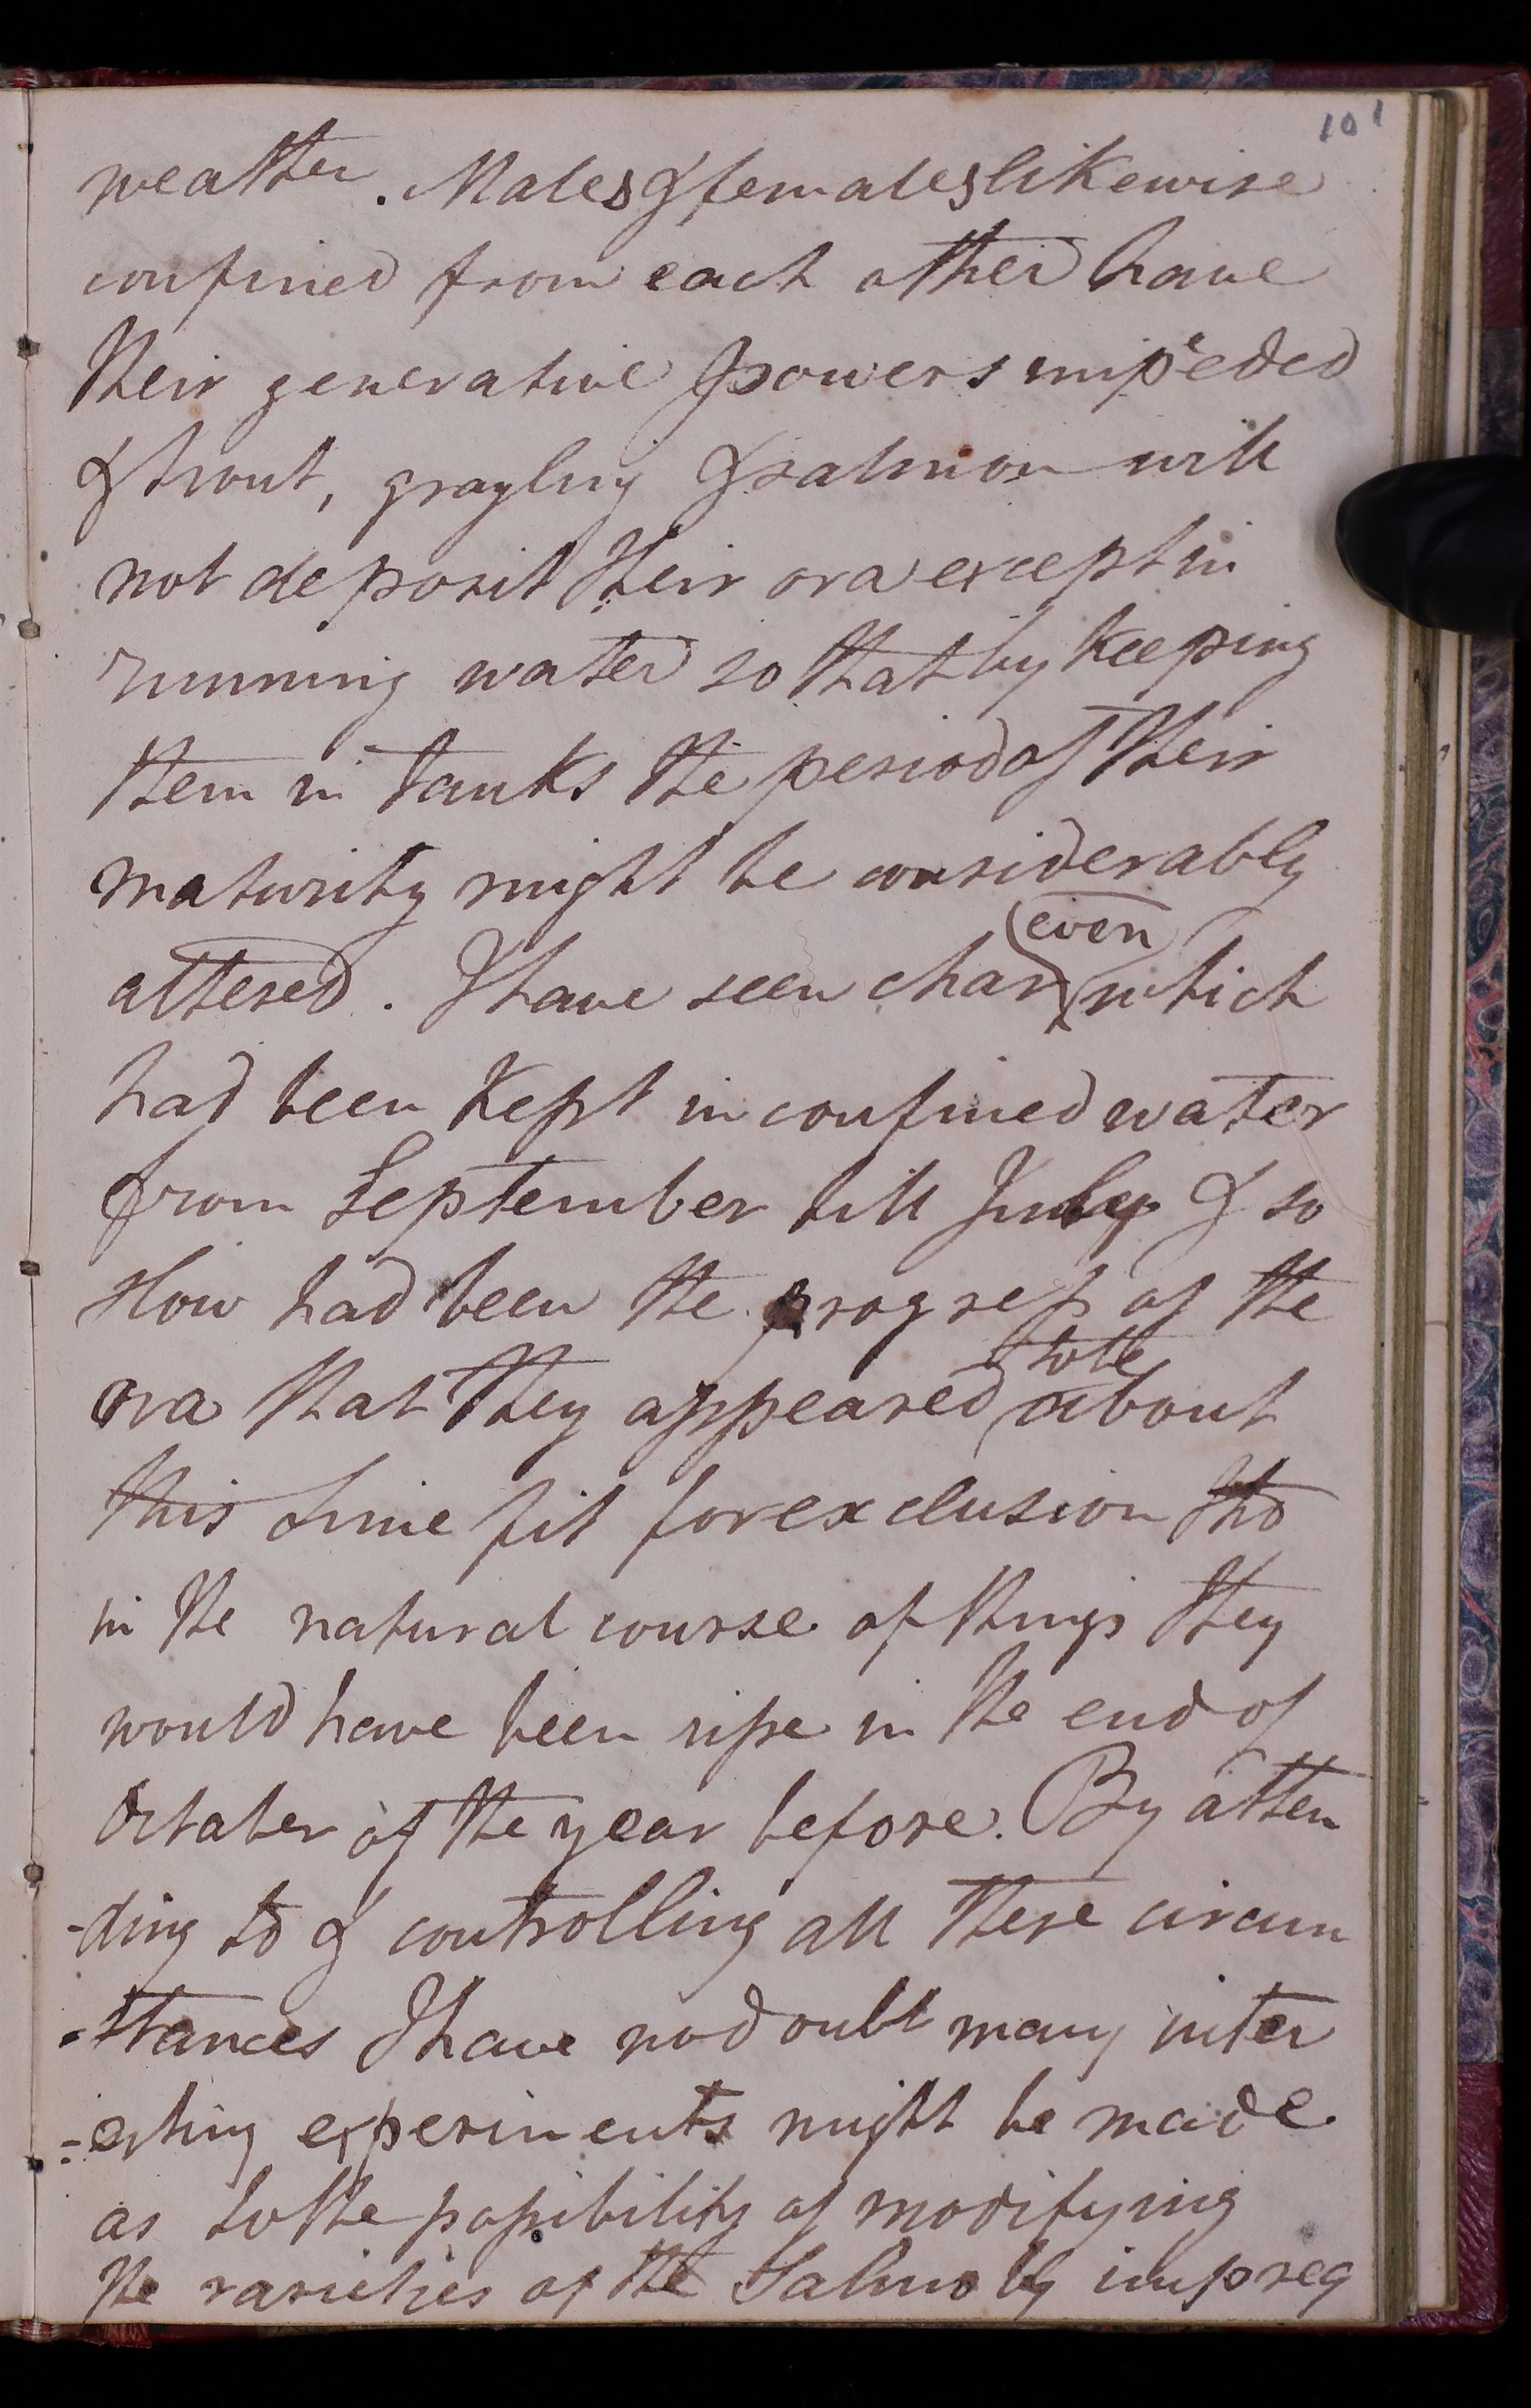 101
weather. Males & females likewise
confined from each other have
their generative powers impeded
& trout, grayling & salmon will
not deposit their ova except in
running water so that by keeping
them in tanks the period of their
maturity might be considerably
even
altered. I have seen char which
had been kept in confined water
from September till July & so
slow had been the progress of the
to be
ova that they appeared about
this time fit for exclusion tho
in the natural course of things they
would have been ripe in the end of
October of the year before. By atten
-ding to & controlling all these circum
-stances I have no doubt many inter
=esting experiments might be made
as to the possibility of modifying
the varieties of the Salmo by impreg